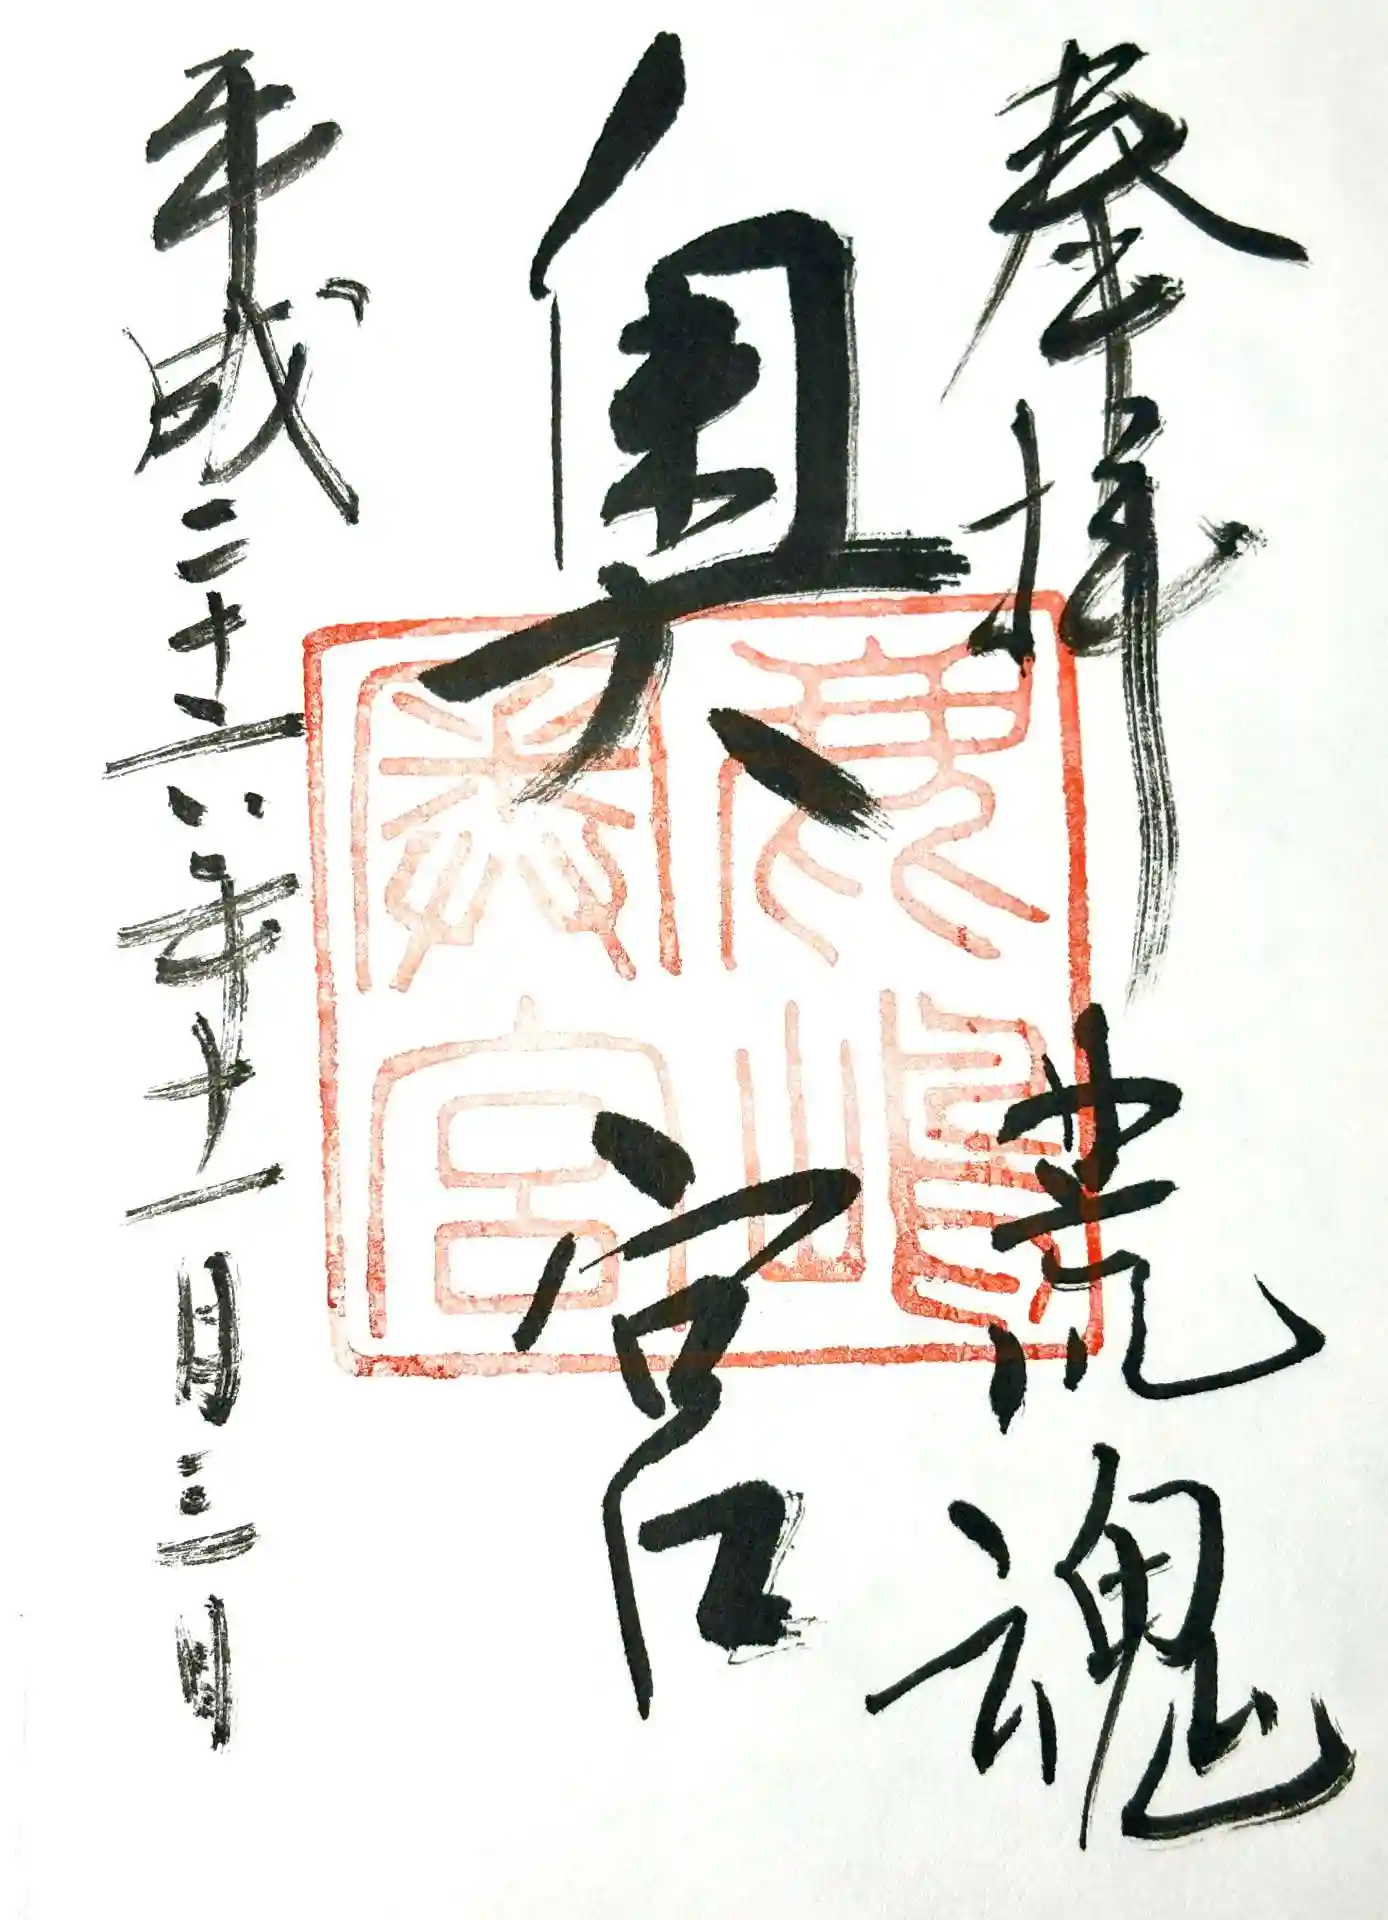 奉拝 荒魂
奥宮
平成二十六年十一月三日
鹿嶋奥宮